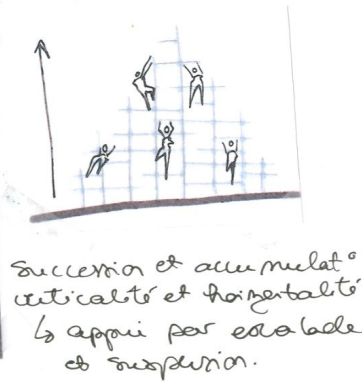 succession et accumulat°
verticalité et horizontalité
↳ appui par escalade
et suspension.